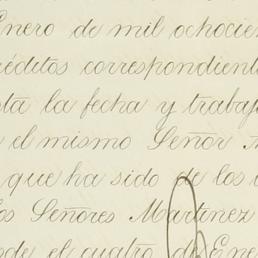 Enero de mil ochocien
réditos correspondient
sta la fecha y trabaj
el mismo Señor
que ha sido de los
los Señores Martinez
sde el cuatro de Ene